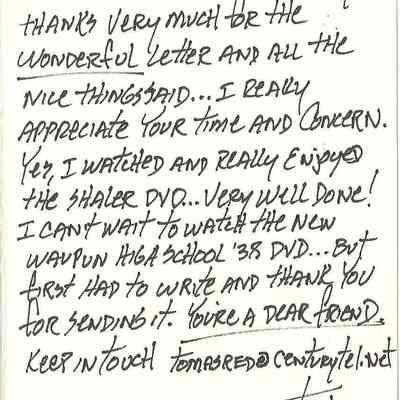 THANKS VERY MUCH FOR THE
WONDERFUL LETTER AND ALL THE
NICE THINGS SAID... I REALLY
APPRECIATE YOUR TIME AND CONCERN.
YES, I WATCHED AND REALLY ENJOYED
THE SHALER DVD... VERY WELL DONE!
I CANT WAIT TO WATCH THE NEW
WAUPUN HIGH SCHOOL '38 DVD... BUT
FIRST HAD TO WRITE AND THANK YOU
FOR SENDING IT. YOU'RE A DEAR FRIEND.
KEEP IN TOUCH TOMASRED@CENTURYTEL.NET